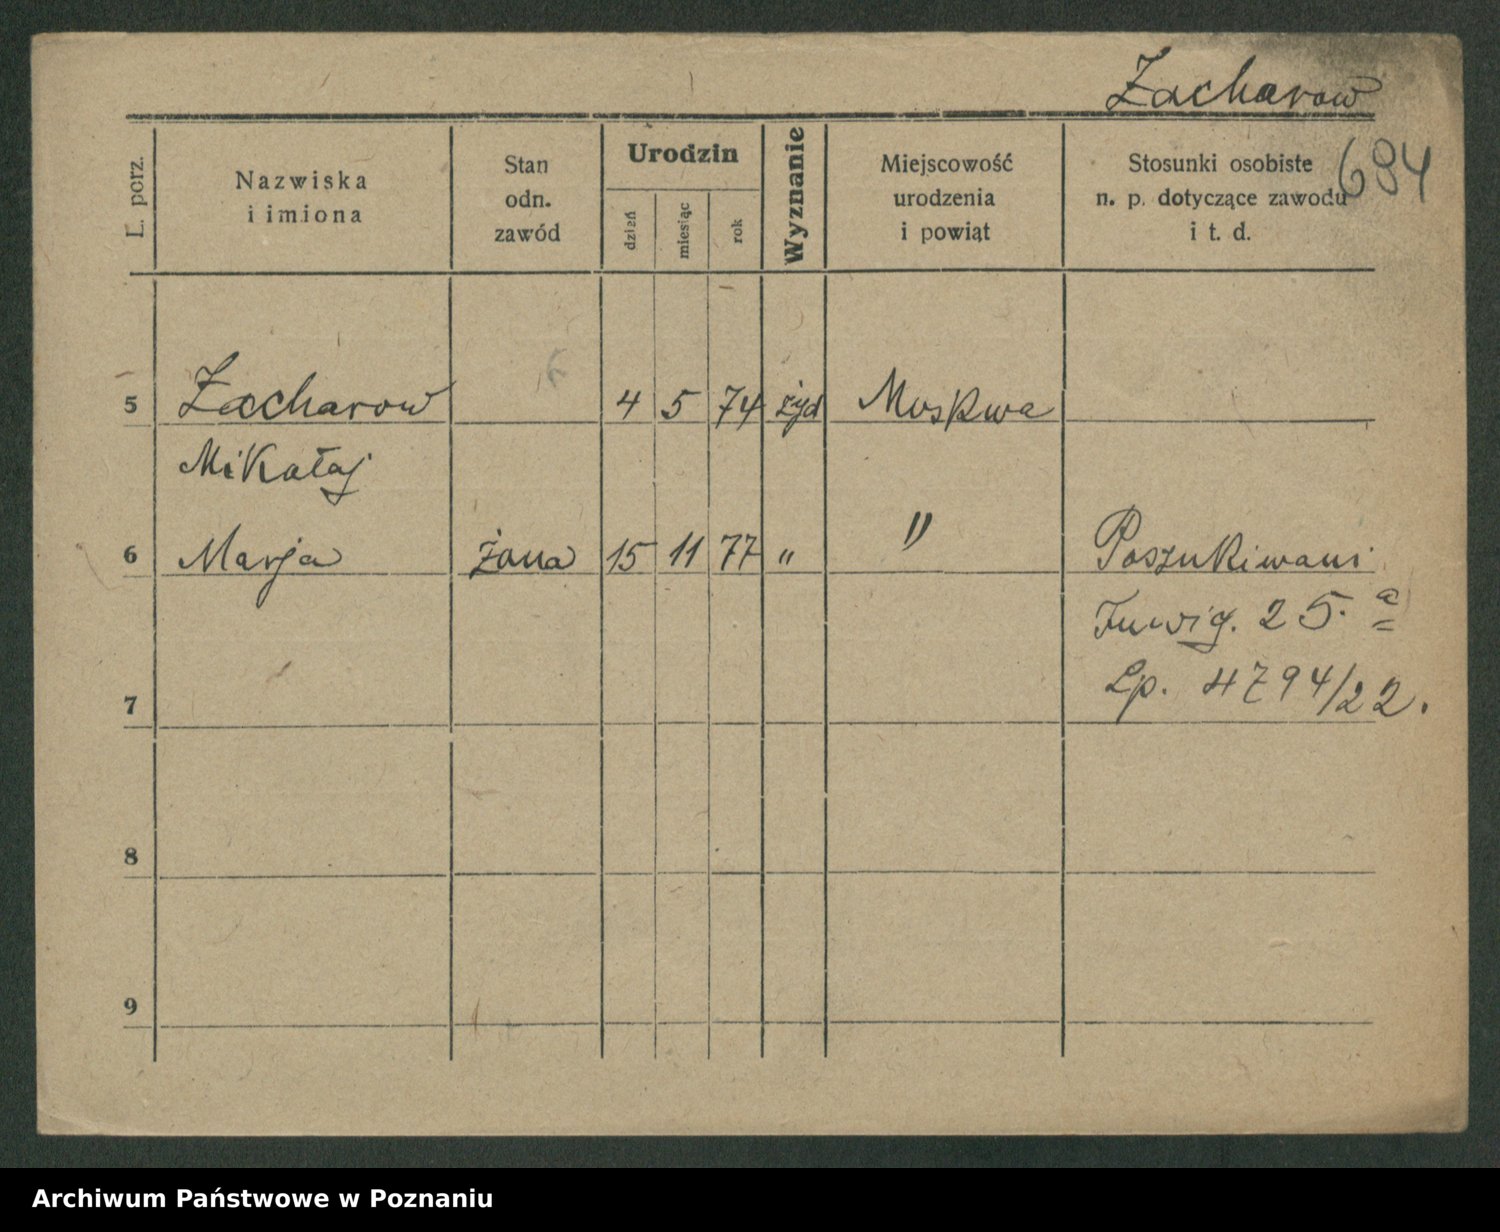 Zacharow
684
L. porz.
Nazwiska
i imiona
Stan
odn.
zawód
Urodzin
dzień
miesiąc
rok
Wyznanie
Miejscowość
urodzenia
i powiąt
Stosunki osobiste
n. p. dotyczące zawodu
i t. d.
5 Zacharow 4 5 74 żyd Moskwa
Mikołaj
6 Marja żona 15 11 77 " " Poszukiwani
25. a
7 Lp. 4794/22.
8
9
Archiwum Państwowe w Poznaniu